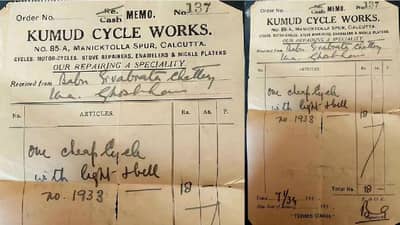 Order No. Re. Cash MEMO. No. 137
KUMUD CYCLE WORKS.
NO. 85-A, MANICKTOLLA SPUR, CALCUTTA.
CYCLES, MOTOR-CYCLES, STOVE REPAIRERS, ENAMELERS & NICKLE PLATERS
OUR REPAIRING A SPECIALITY.
Received from Babu
Rs. ARTICLES. Rs. A. P.
one cheap Cycle
with light & bell
no. 1933 18
Order No. Cash MEMO. No. 137
KUMUD CYCLE WORKS.
NO. 85-A, MANICKTOLLA SPUR, CALCUTTA.
CYCLES, MOTOR-CYCLES, STOVE REPAIRERS, ENAMELERS & NICKLE PLATERS
OUR REPAIRING A SPECIALITY.
Received from Babu
Rs. ARTICLES. Rs. A. P.
one cheap Cycle
with light & bell
no. 1933 18
Total Rs. 18
"TERMS CASH."